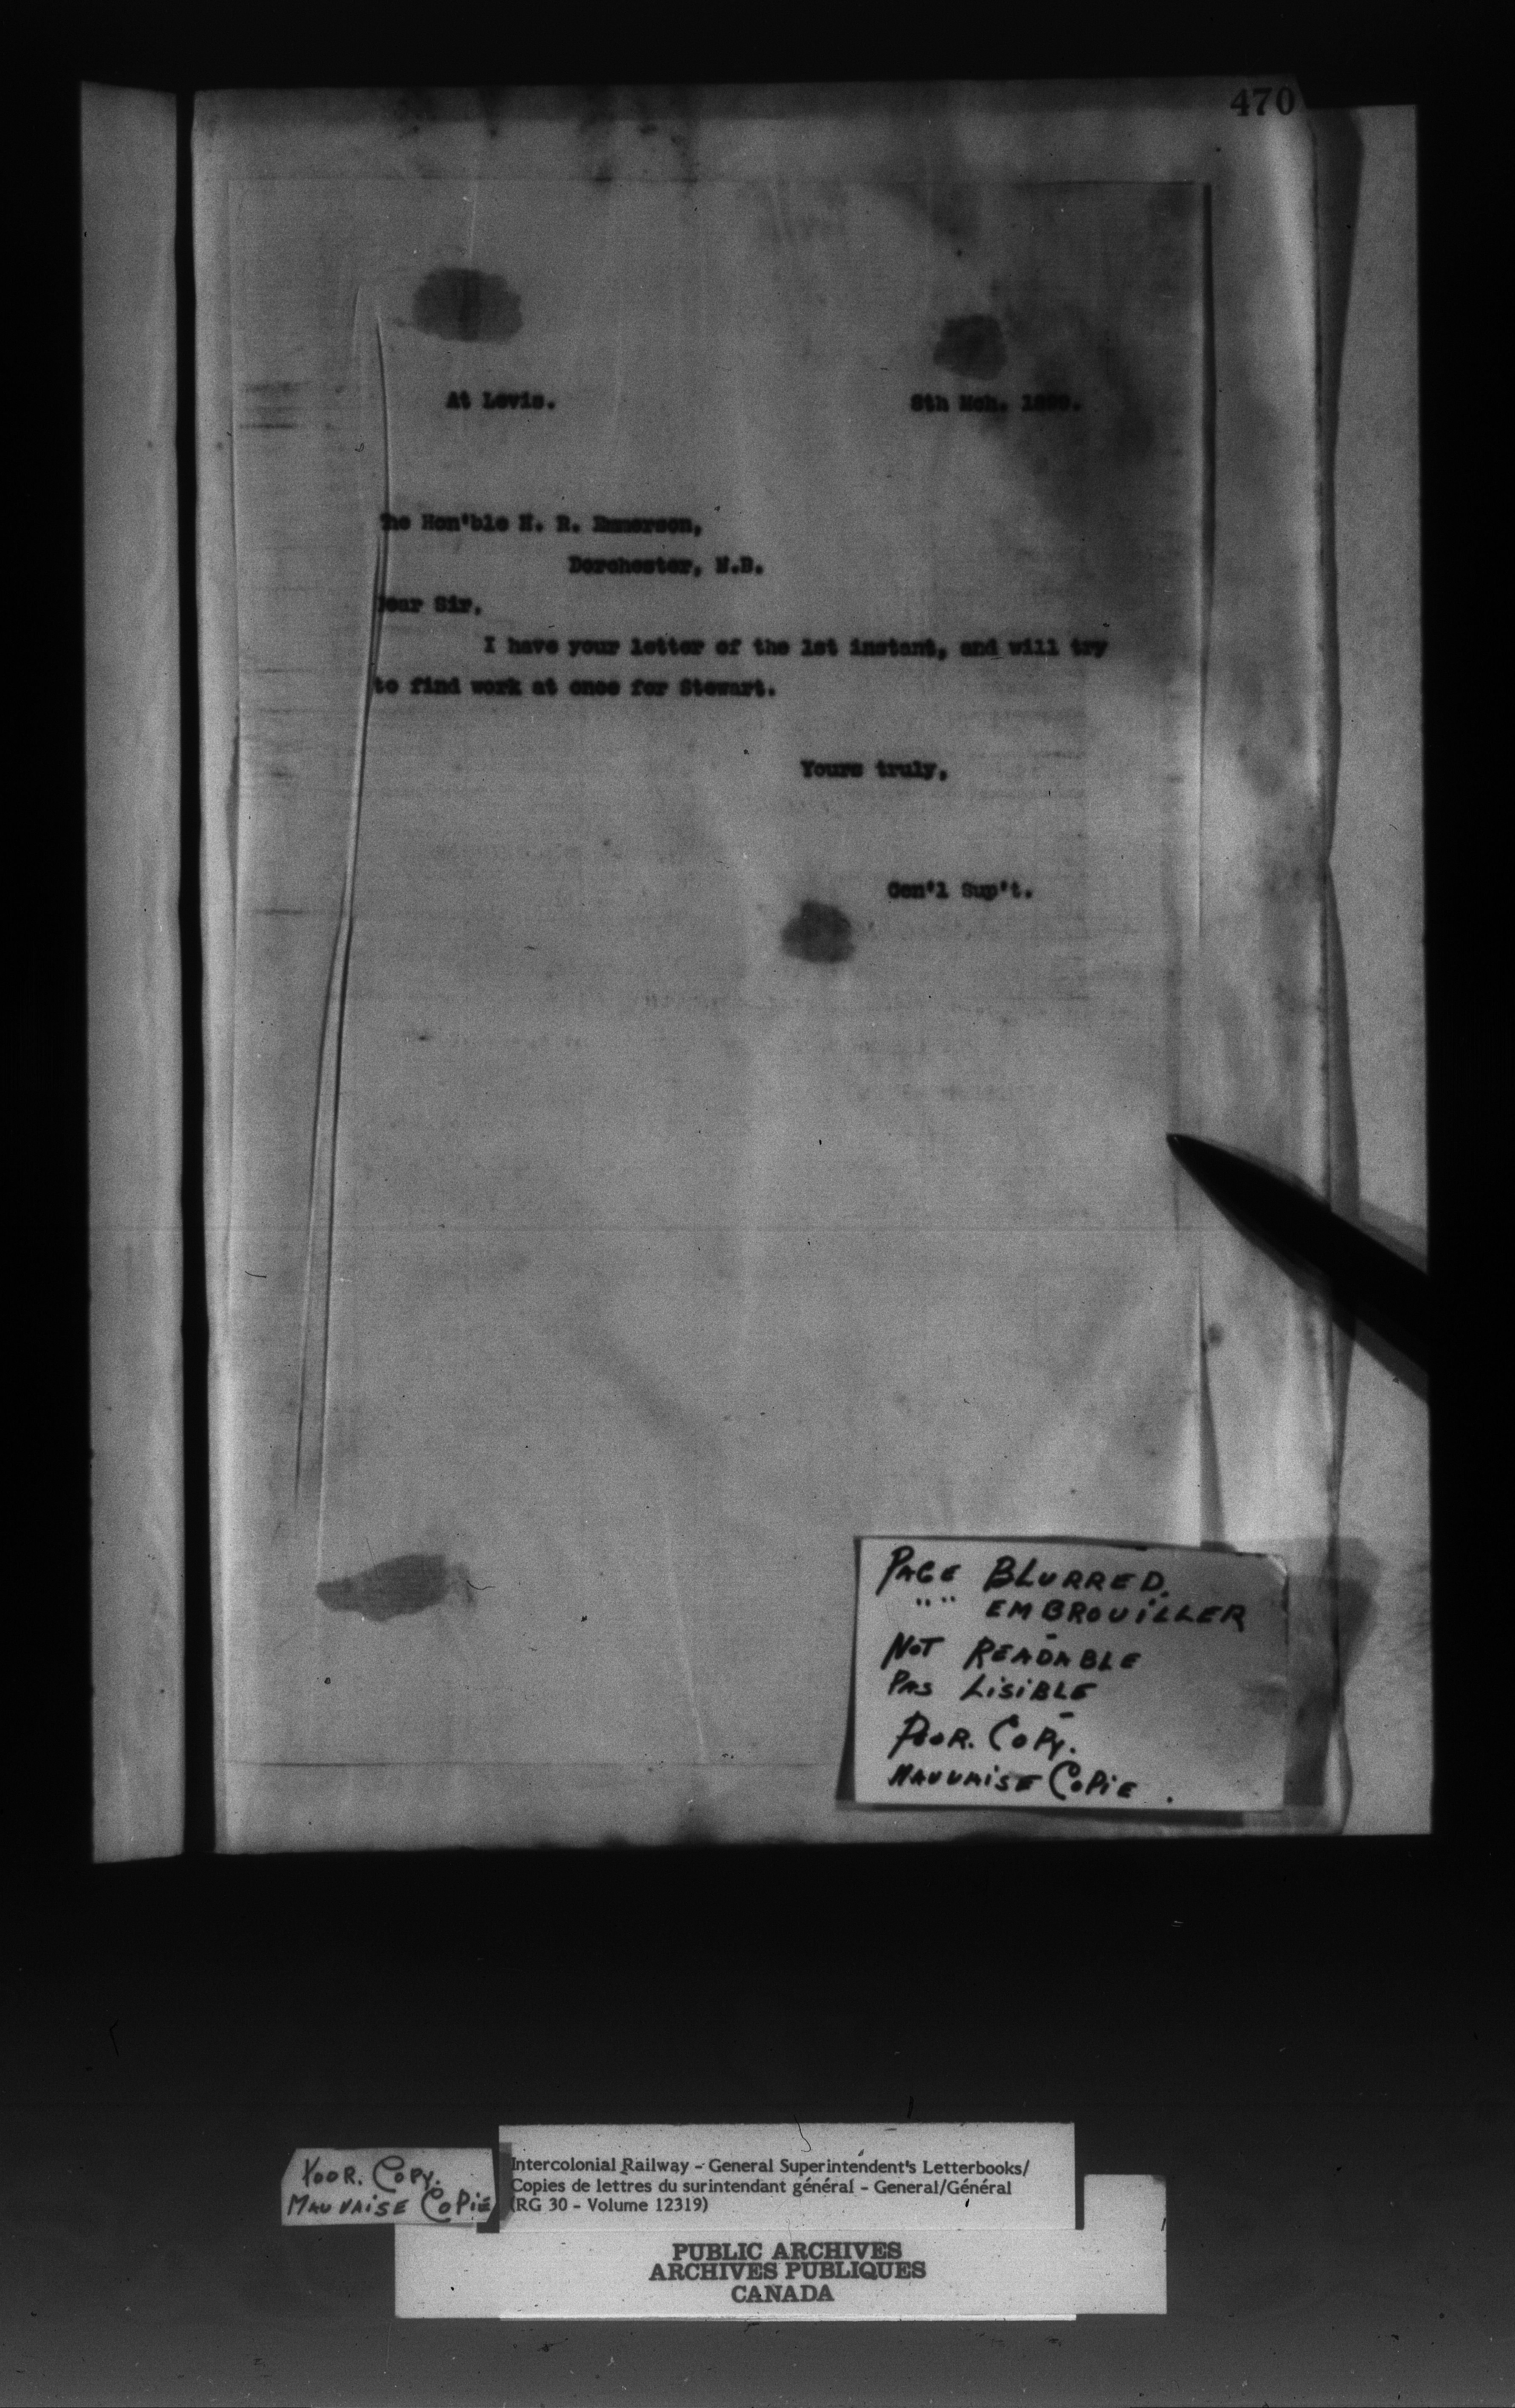 470
At Levis. 8th Mch.
The Hon'ble H. R. Emmerson,
Dorchester, N.B.
Dear Sir,
I have your letter of the 1st instant, and will try
to find work at once for Stewart.
Yours truly,
Gen'l Sup't.
PAGE BLURRED.
" " EMBROUILLER
NOT READABLE
PAS LISIBLE
POOR. COPY.
MAUVAISE COPIE.
POOR. COPY.
MAUVAISE COPIE
Intercolonial Railway - General Superintendent's Letterbooks/
Copies de lettres du surintendant général - General/Général
(RG 30 - Volume 12319)
PUBLIC ARCHIVES
ARCHIVES PUBLIQUES
CANADA